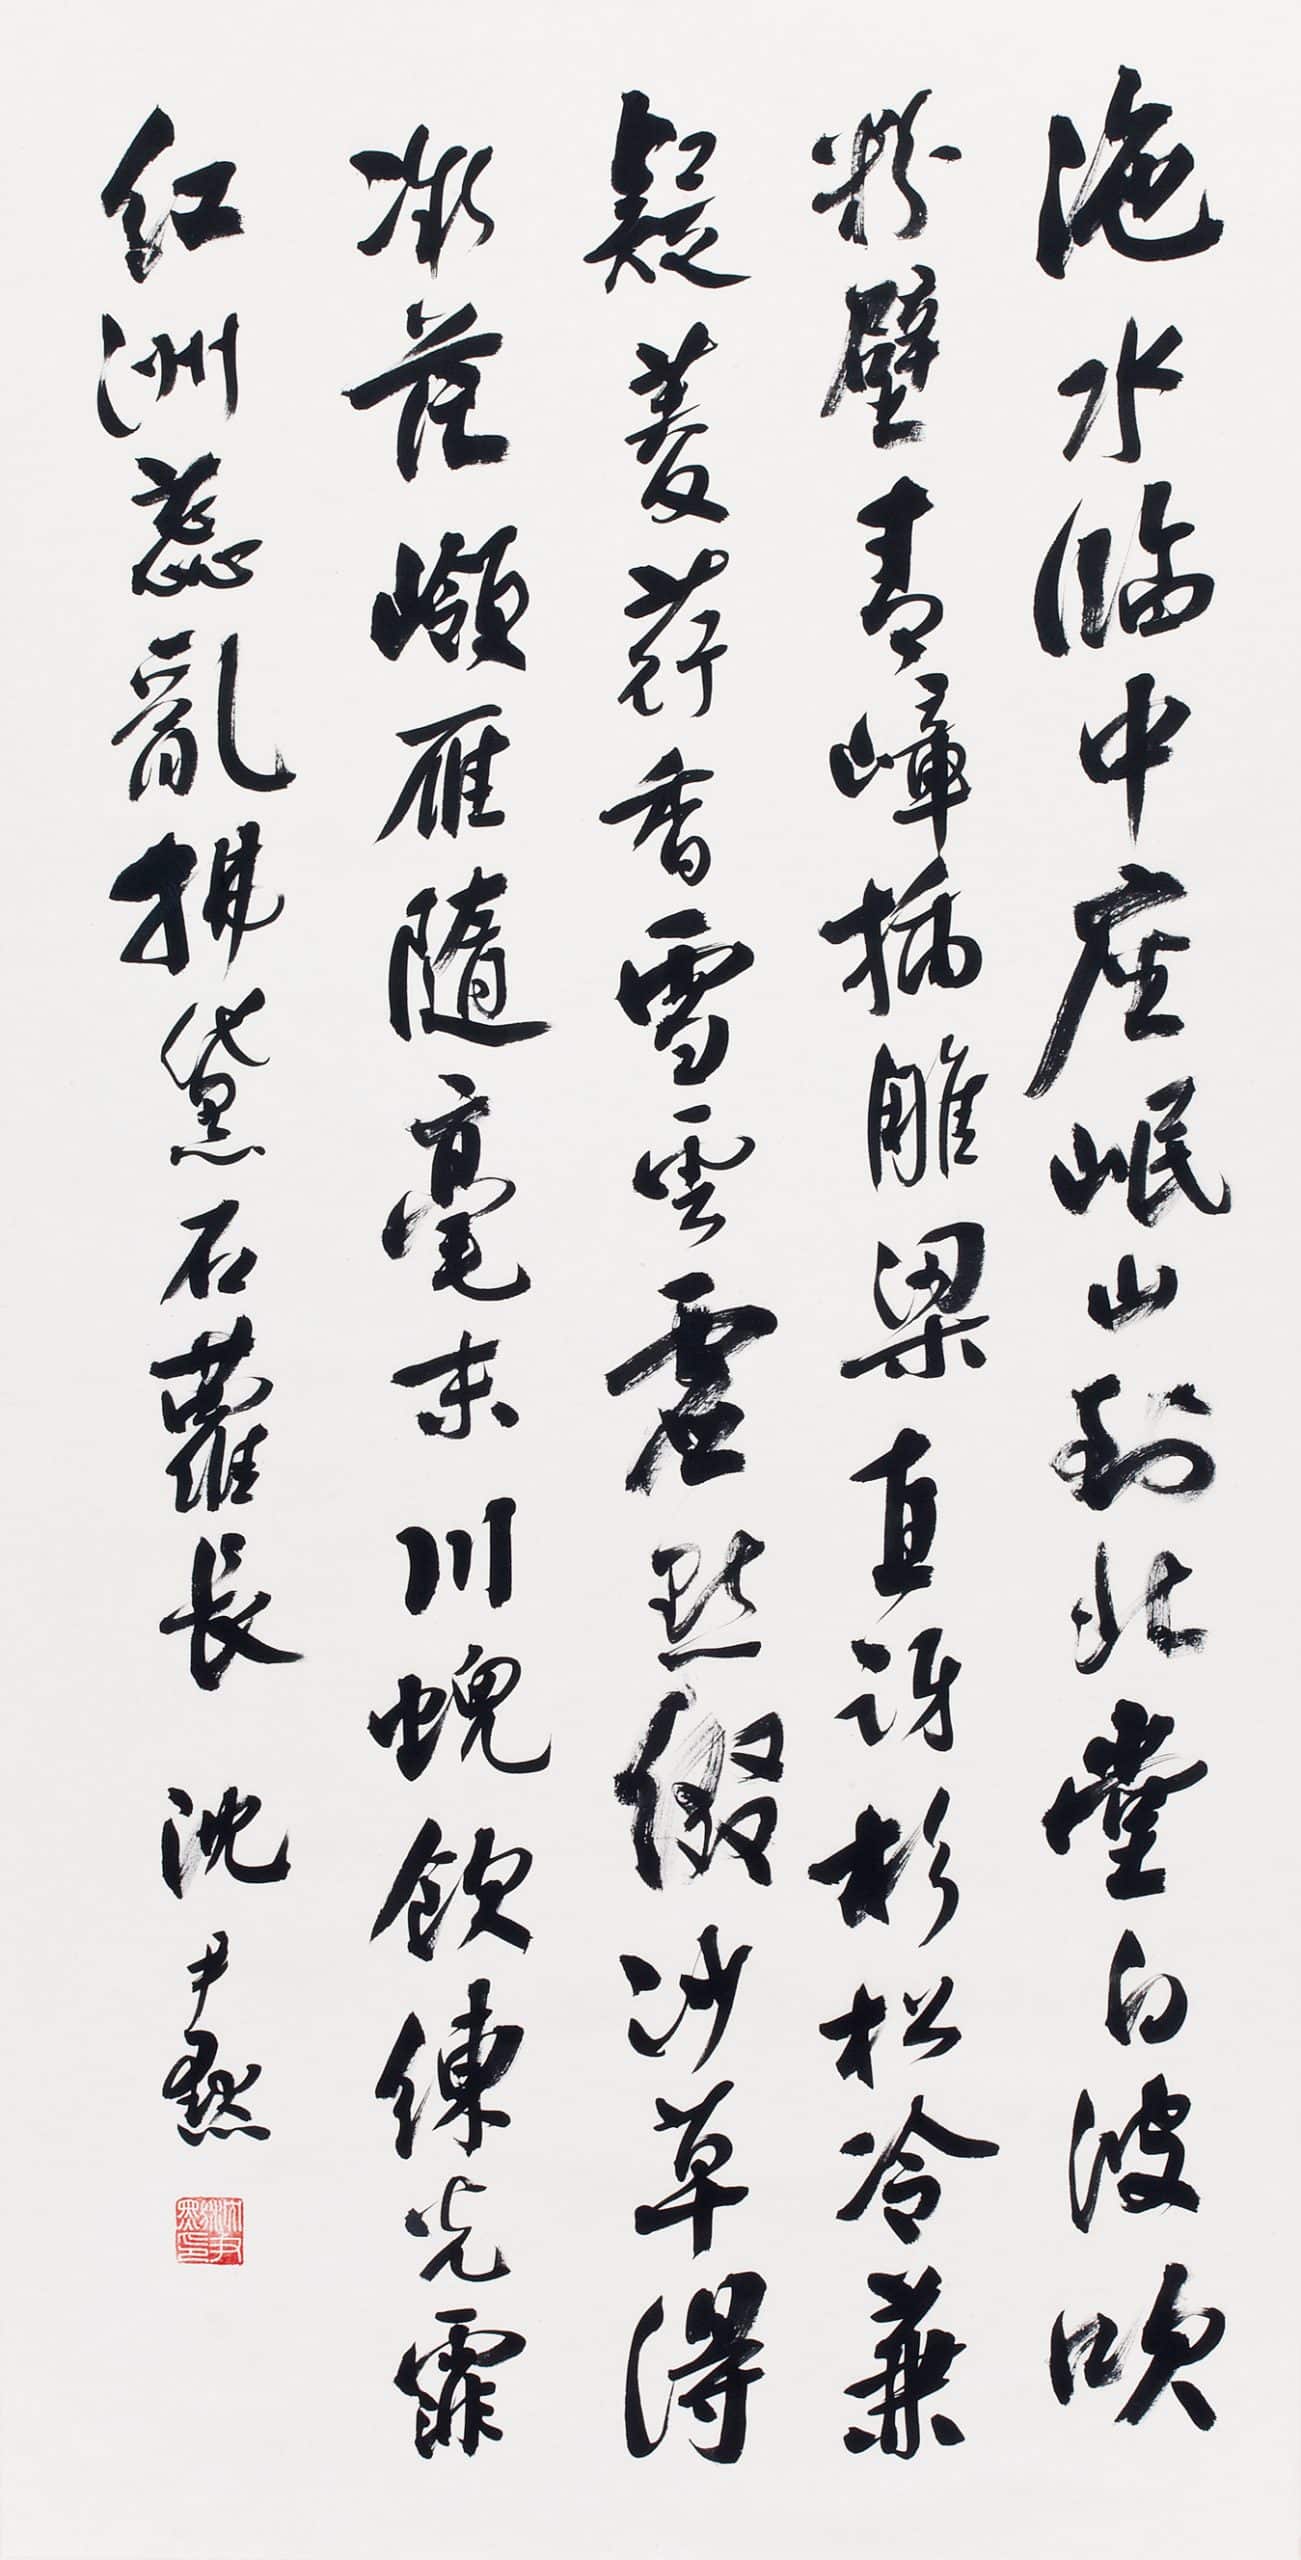 沱水臨中座岷山到北堂白波吹
粉壁青嶂插雕梁直訝杉松冷兼
疑菱荇香雪雲虛點綴沙草得
微茫嶺雁隨毫末川蜺飲練光霏
紅洲蕊亂拂黛石蘿長 沈尹默
沈尹默印